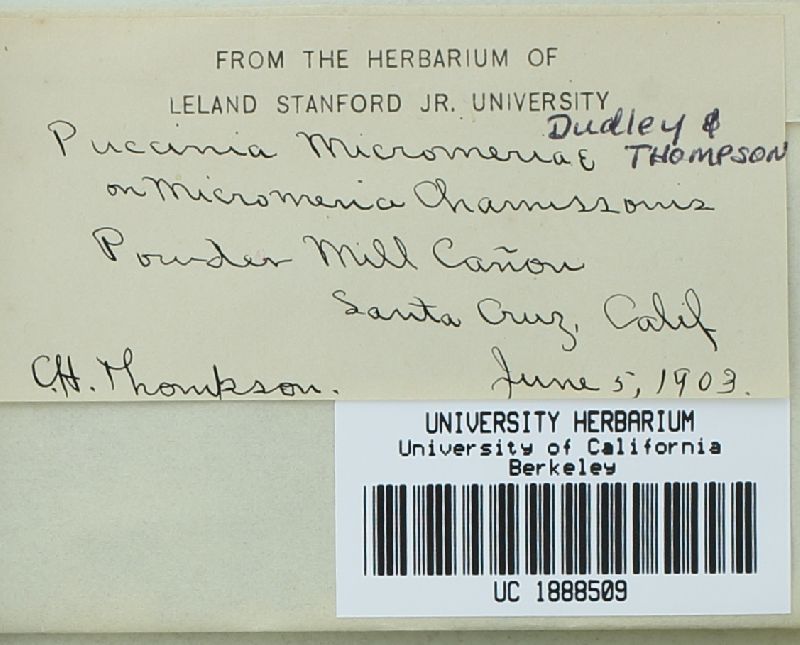 FROM THE HERBARIUM OF
LELAND STANFORD JR. UNIVERSITY
Puccinia Micromeriae Dudley &
THOMPSON
on Micromeria Chamissonis
Powder Mill Cañon
Santa Cruz, Calif
C.H. Thompson. June 5, 1903.
UNIVERSITY HERBARIUM
University of California
Berkeley
UC 1888509